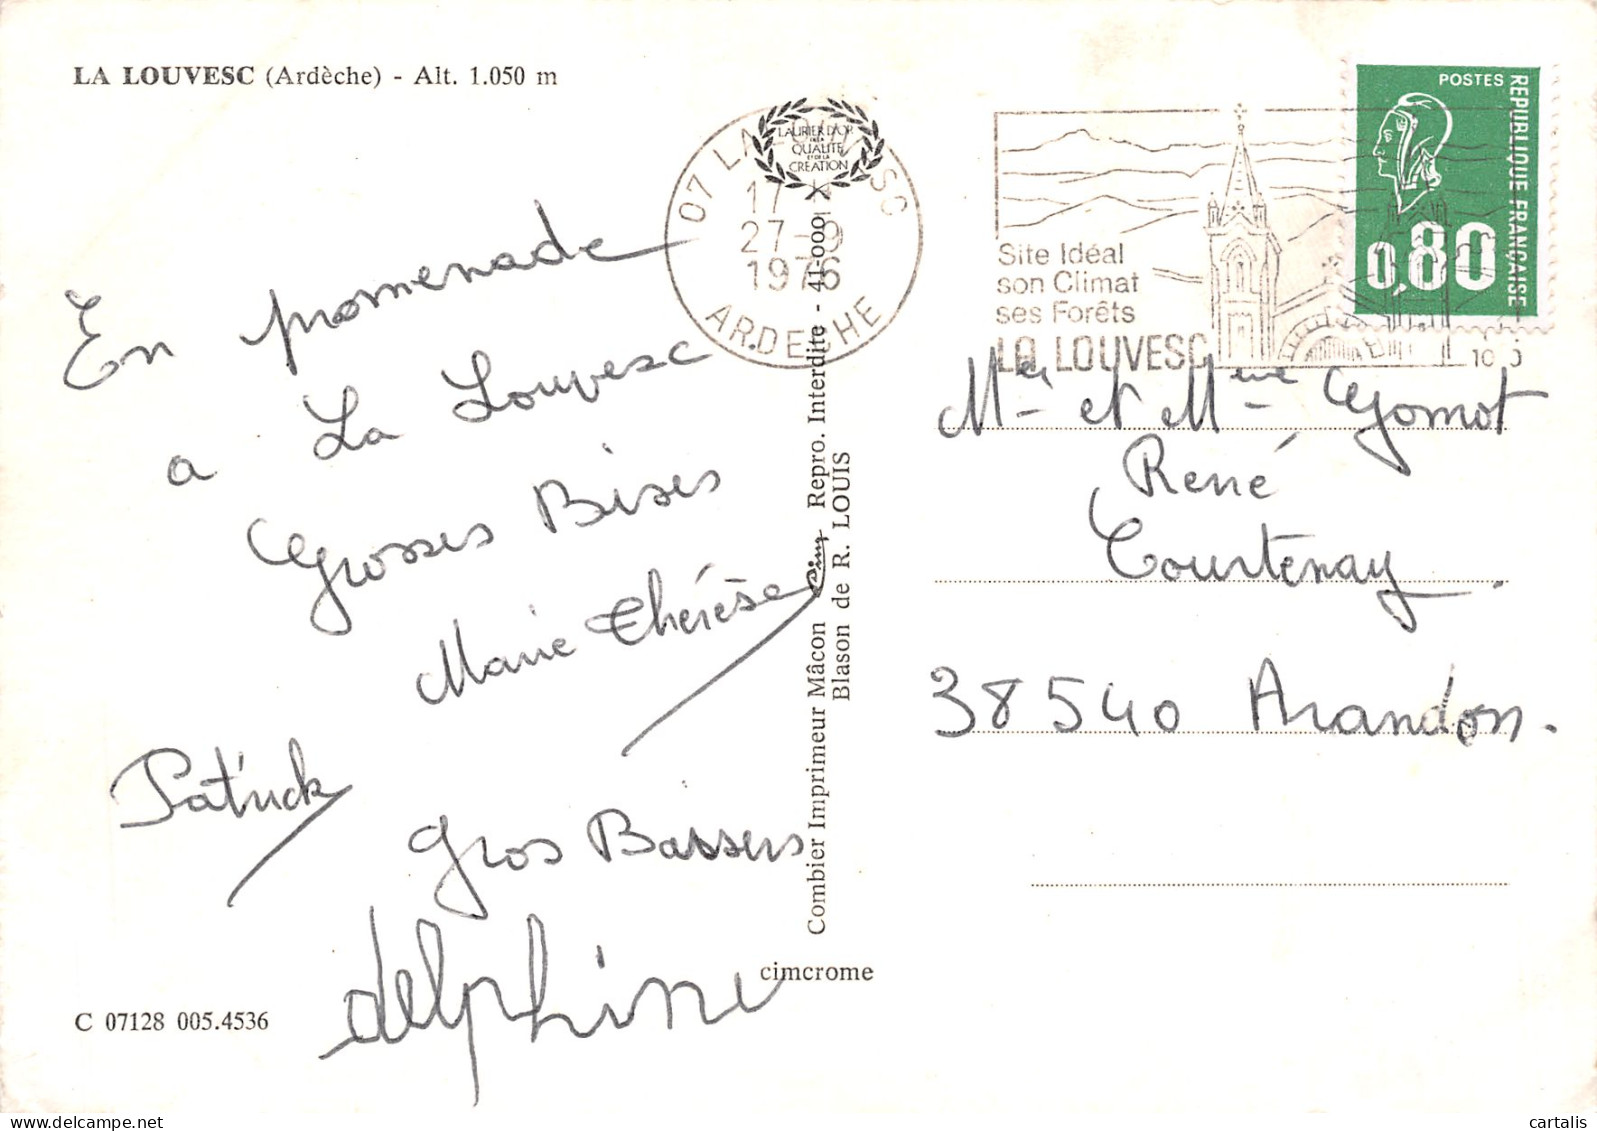 LA LOUVESC (Ardèche) - Alt. 1.050 m
En promenade
a La Louvesc
Grosses Bises
Marie Thérèse
Patrick
Gros Bassers
delphine
C 07128 005.4536
cimcrome
Combier Imprimeur Mâcon Cim Repro. Interdite - 41-000
Blason de R. LOUIS
LAURIER D'OR
DE LA
QUALITÉ
ET DE LA
CRÉATION
07 LA LOUVESC
17 H
27-9
1976
ARDECHE
Site Idéal
son Climat
ses Forêts
LA LOUVESC
POSTES
REPUBLIQUE FRANÇAISE
0,80
Mr et Mme Gomot
René
Courtenay.
38540 Arandon.
cartalis